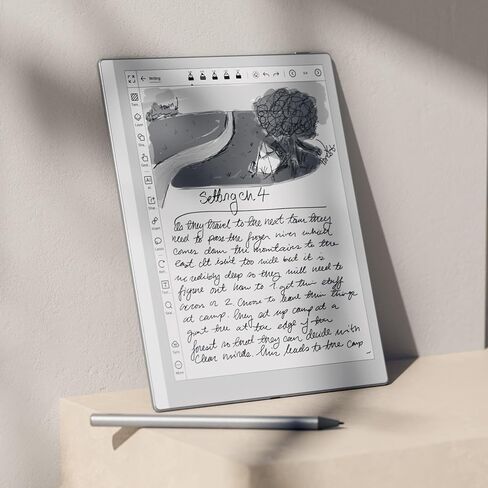 Writing
Setting ch. 4
As they travel to the next town they
need to pass the frozen river which
comes down the mountains to the
east. It isn't too wide but it is
incredibly deep so they will need to
figure out how to 1. get their stuff
across or 2. choose to leave their things
at camp. They set up camp at a
giant tree at the edge of the
forest so that they can decide with
clear minds. This leads to the camp